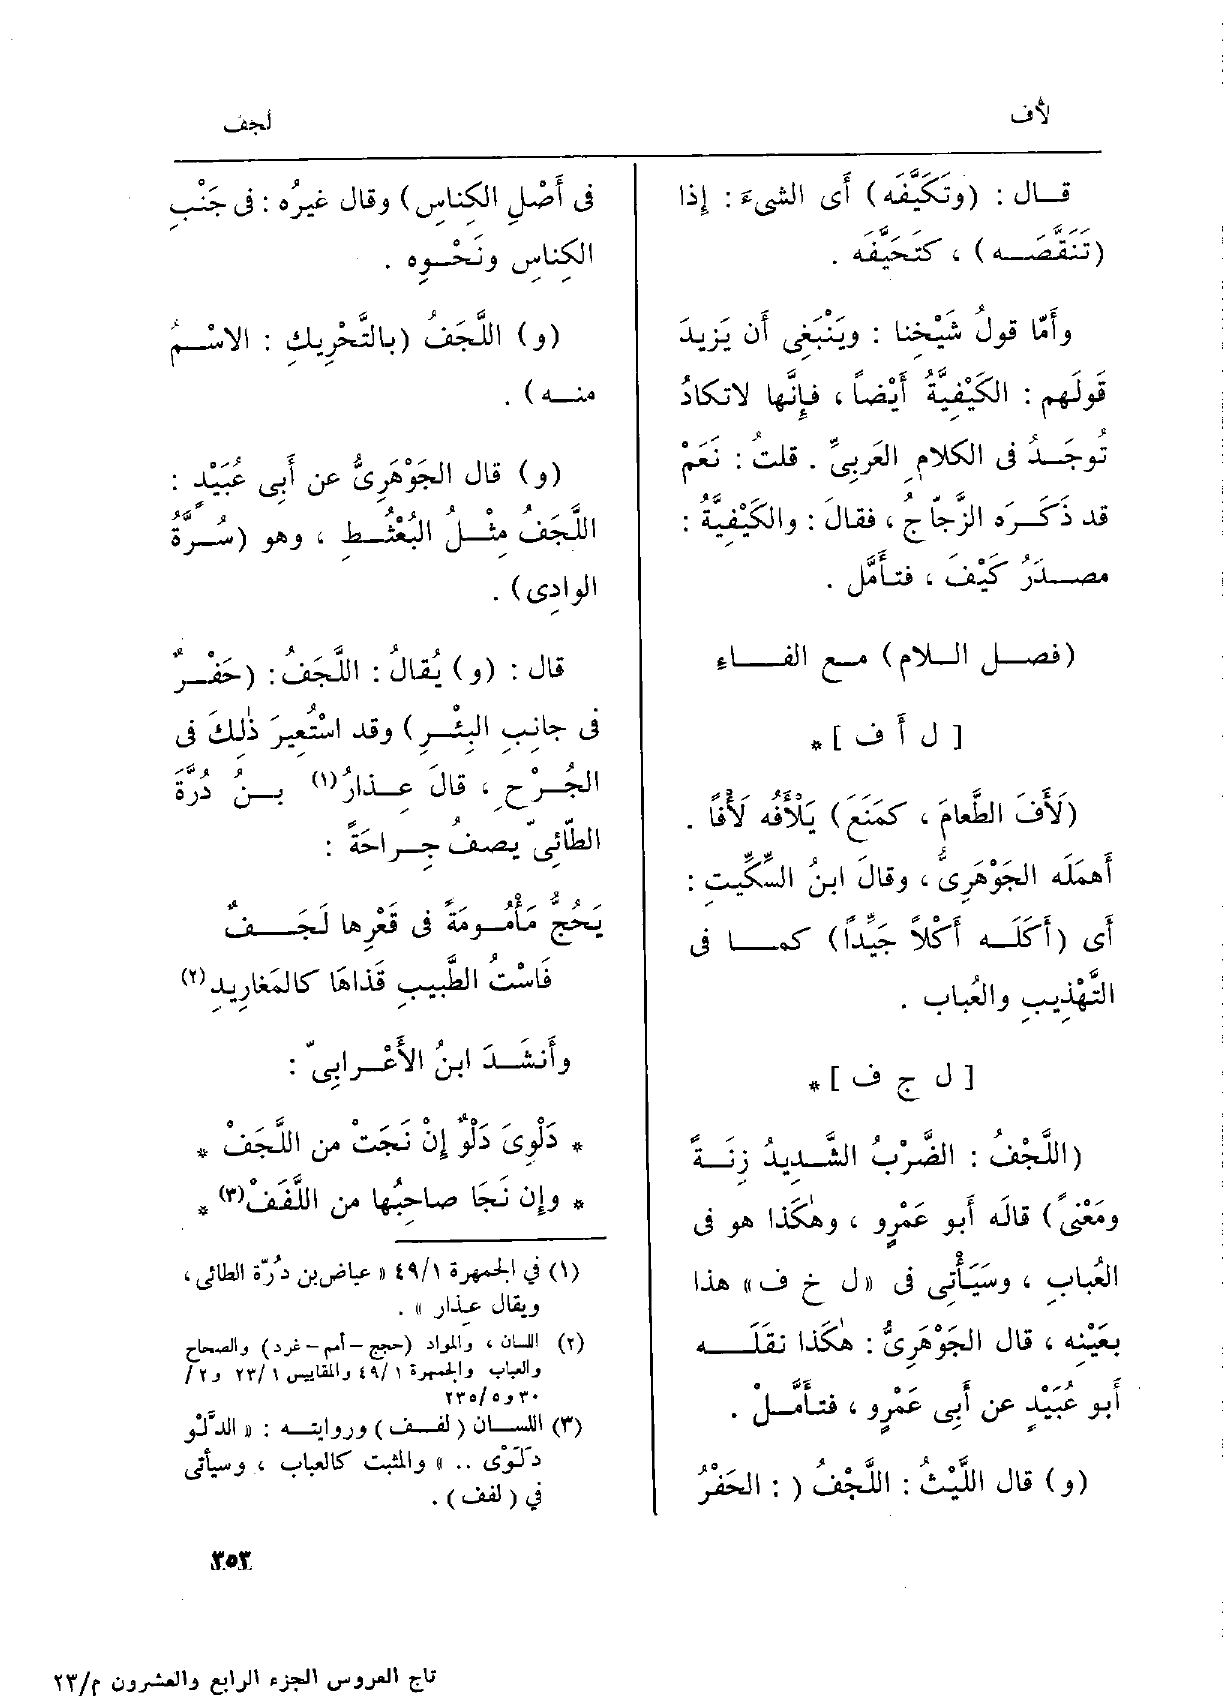 لأف
لجف
قال : (وتَكَيَّفَه) أى الشىءَ : إذا
(تَنَقَّصَه) ، كتَحَيَّفَه .
وأَمّا قولُ شَيْخِنا : ويَنْبَغِى أن يَزِيدَ
قَولَهم : الكَيْفِيَّةُ أَيْضاً ، فإِنَّها لاتكادُ
تُوجَدُ فى الكلامِ العَربِىِّ . قلتُ : نَعَمْ
قد ذَكَرَه الزَّجّاجُ ، فقالَ : والكَيْفِيَّةُ :
مصدَرُ كَيْفَ ، فتأَمَّل .
(فصل اللام) مع الفاء
[ ل أ ف ] *
(لَأَفَ الطَّعامَ ، كمَنَعَ) يَلْأَفُه لَأْفًا .
أَهمَلَه الجَوْهَرِىُّ ، وقالَ ابنُ السِّكِّيتِ :
أى (أَكَلَه أَكْلاً جَيِّداً) كما فى
التَّهْذِيبِ والعُباب .
[ ل ج ف ] *
(اللَّجْفُ : الضَّرْبُ الشَّدِيدُ زِنَةً
ومَعْنىً) قالَه أَبو عَمْرٍو ، وهٰكَذا هو فى
العُبابِ ، وسَيَأْتِى فى «ل خ ف» هذا
بعَيْنِه ، قال الجَوْهَرِىُّ : هٰكَذا نقَلَه
أَبو عُبَيْدٍ عن أَبِى عَمْرٍو ، فتأَمَّلْ .
(و) قال اللَّيْثُ : اللَّجْفُ ( : الحَفْرُ
فى أَصْلِ الكِناسِ) وقال غيرُه : فى جَنْبِ
الكِناسِ ونَحْوِه .
(و) اللَّجَفُ (بالتَّحْرِيكِ : الاسْمُ
منه) .
(و) قال الجَوْهَرِىُّ عن أَبِى عُبَيْدٍ :
اللَّجَفُ مِثْلُ البُعْثُطِ ، وهو (سُرَّةُ
الوادِى) .
قال : (و) يُقالُ : اللَّجَفُ : (حَفْرٌ
فى جانِبِ البِئْرِ) وقد اسْتُعِيرَ ذٰلِكَ فى
الجُرْحِ ، قالَ عِذارُ(١) بنُ دُرَّةَ
الطّائِىّ يصفُ جِراحَةً :
يَحُجُّ مَأْمُومَةً فى قَعْرِها لَجَفٌ
فَاسْتُ الطَّبِيبِ قَذاهَا كالمَغارِيدِ(٢)
وأَنشَدَ ابنُ الأَعْرابِىّ :
* دَلْوِىَ دَلْوٌ إِنْ نَجَتْ من اللَّجَفْ *
* وإن نَجَا صاحِبُها من اللَّفَفْ(٣) *
(١) في الجمهرة ٤٩/١ « عياض بن دُرّة الطائى ،
ويقال عِذار » .
(٢) اللسان ، والمواد (حجج - أمم - غرد) والصحاح
والعباب والجمهرة ٤٩/١ والمقاييس ٢٣/١ و٢/
٣٠ و٢٣٥/٥
(٣) اللسان (لفف) وروايته : « الدَّلْو
دَلْوِى .. » والمثبت كالعباب ، وسيأتى
في (لفف) .
٣٥٣
تاج العروس الجزء الرابع والعشرون م/٢٣